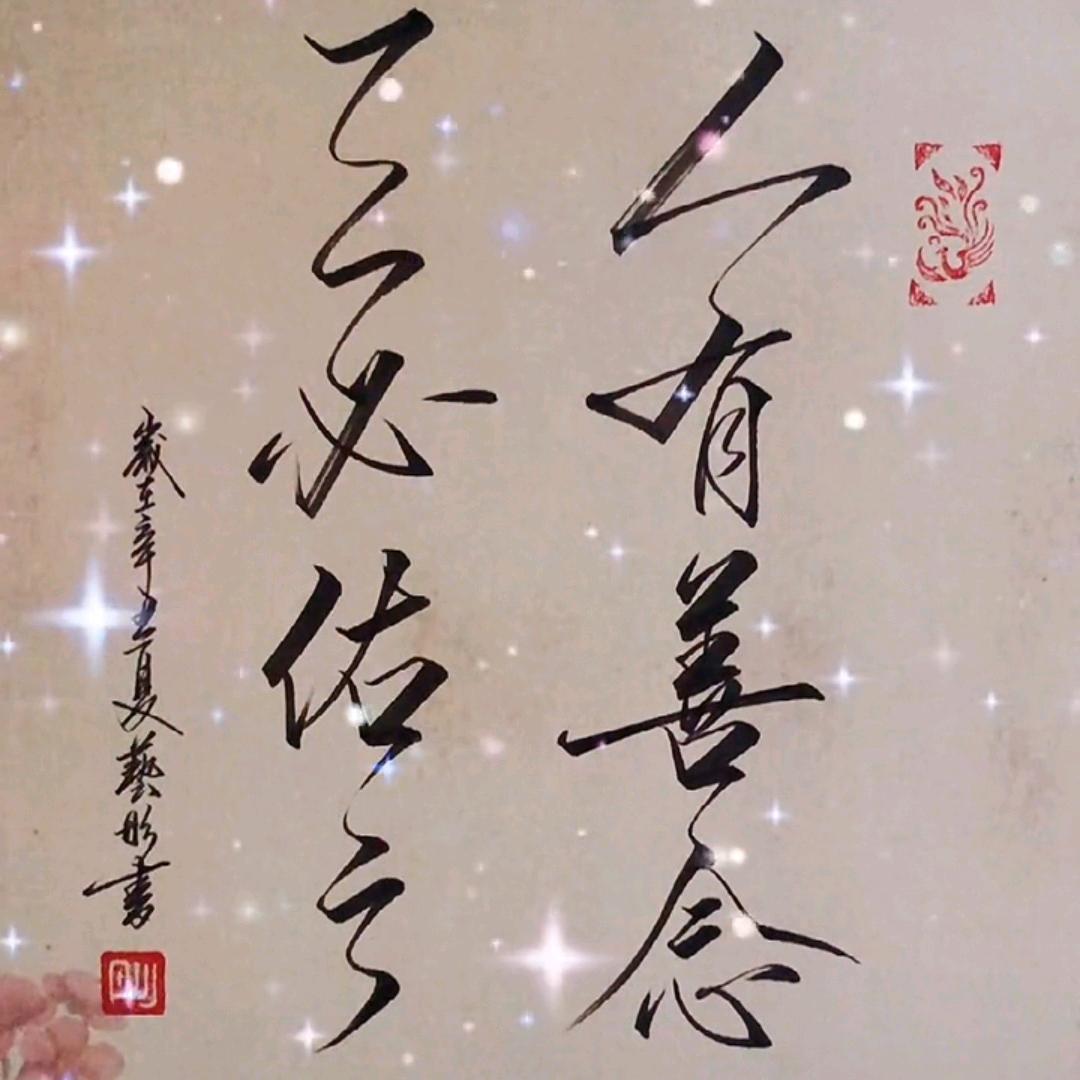 人有善念
天必佑之
歲在辛丑夏藝彤書